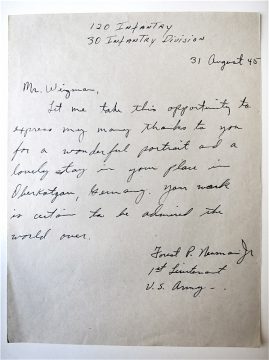 120 Infantry
30 Infantry Division
31 August 45
Mr. Wizman,
Let me take this opportunity to
express my many thanks to you
for a wonderful portrait and a
lovely stay in your place in
Oberkotzau, Germany. Your work
is certain to be admired the
world over.
Forest P. Newman Jr
1st Lieutenant
U.S. Army